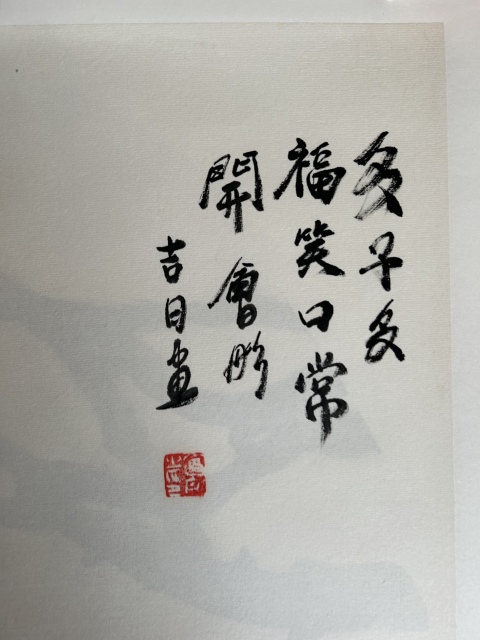 多子多
福笑口常
開 會彬
吉日畫